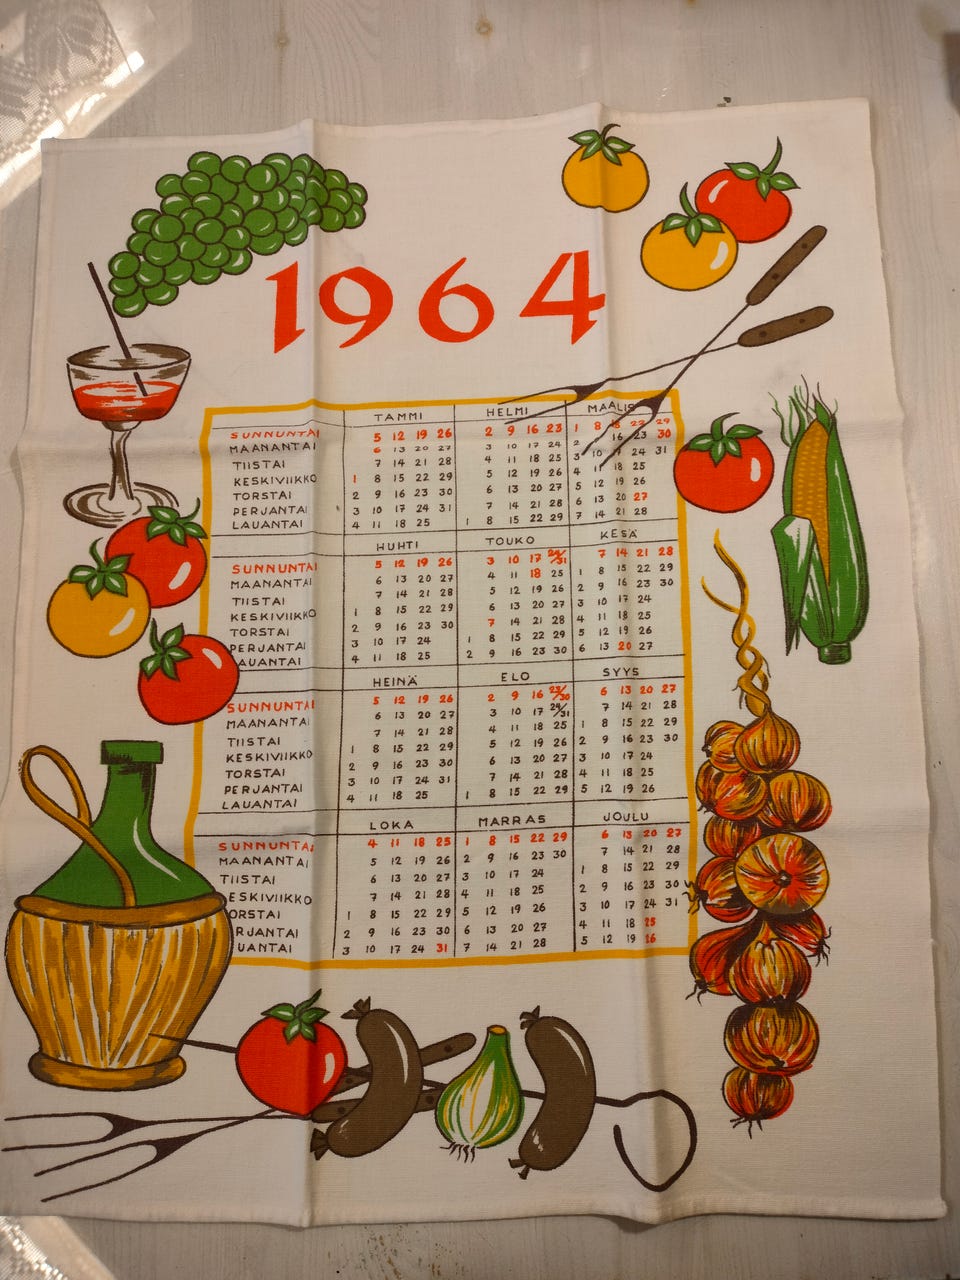 1964
TAMMI HELMI MAALIS
SUNNUNTAI 5 12 19 26 2 9 16 23 1 8 15 22 29
MAANANTAI 6 13 20 27 3 10 17 24 2 16 23 30
TIISTAI 7 14 21 28 4 11 18 25 3 10 17 24 31
KESKIVIIKKO 1 8 15 22 29 5 12 19 26 4 11 18 25
TORSTAI 2 9 16 23 30 6 13 20 27 5 12 19 26
PERJANTAI 3 10 17 24 31 7 14 21 28 6 13 20 27
LAUANTAI 4 11 18 25 1 8 15 22 29 7 14 21 28
HUHTI TOUKO KESÄ
SUNNUNTAI 5 12 19 26 3 10 17 24/31 7 14 21 28
MAANANTAI 6 13 20 27 4 11 18 25 1 8 15 22 29
TIISTAI 7 14 21 28 5 12 19 26 2 9 16 23 30
KESKIVIIKKO 1 8 15 22 29 6 13 20 27 3 10 17 24
TORSTAI 2 9 16 23 30 7 14 21 28 4 11 18 25
PERJANTAI 3 10 17 24 1 8 15 22 29 5 12 19 26
AUANTAI 4 11 18 25 2 9 16 23 30 6 13 20 27
HEINÄ ELO SYYS
SUNNUNTAI 5 12 19 26 2 9 16 23/30 6 13 20 27
MAANANTAI 6 13 20 27 3 10 17 24/31 7 14 21 28
TIISTAI 7 14 21 28 4 11 18 25 1 8 15 22 29
KESKIVIIKKO 1 8 15 22 29 5 12 19 26 2 9 16 23 30
TORSTAI 2 9 16 23 30 6 13 20 27 3 10 17 24
PERJANTAI 3 10 17 24 31 7 14 21 28 4 11 18 25
LAUANTAI 4 11 18 25 1 8 15 22 29 5 12 19 26
LOKA MARRAS JOULU
SUNNUNTAI 4 11 18 25 1 8 15 22 29 6 13 20 27
MAANANTAI 5 12 19 26 2 9 16 23 30 7 14 21 28
TIISTAI 6 13 20 27 3 10 17 24 1 8 15 22 29
ESKIVIIKKO 7 14 21 28 4 11 18 25 2 9 16 23 30
ORSTAI 1 8 15 22 29 5 12 19 26 3 10 17 24 31
RJANTAI 2 9 16 23 30 6 13 20 27 4 11 18 25
UANTAI 3 10 17 24 31 7 14 21 28 5 12 19 26